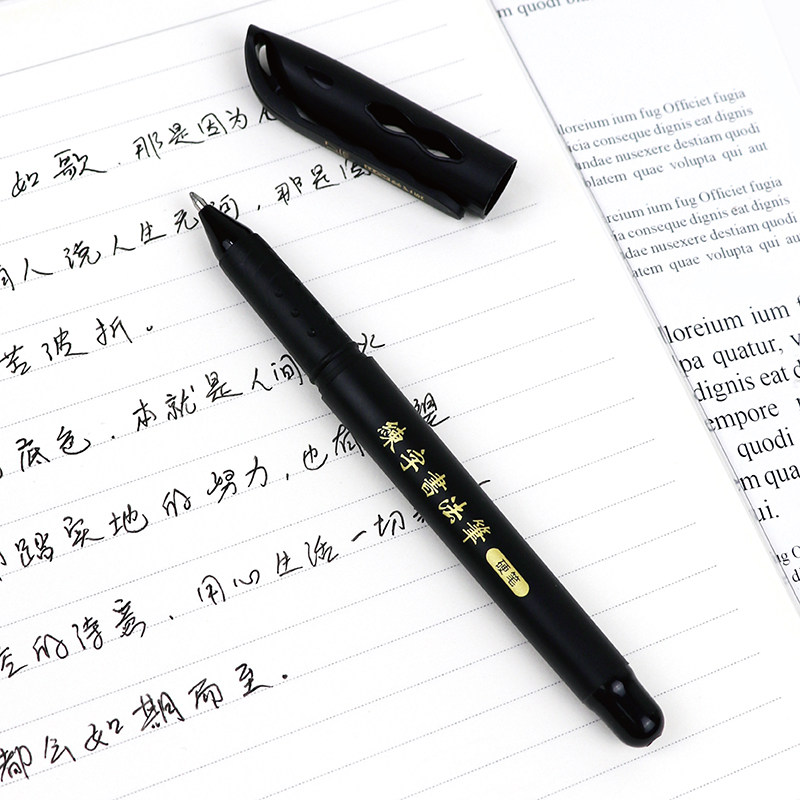 如歌，那是因为
有人说人生无
那是
苦波折。
底色，本就是人间
踏实地的努力，也在
的诗意，用心生活一切
都会如期而至。
練字書法筆
硬笔
m quodi
loreium ium fug Officiet fugia
cia conseque dignis eat dignis
andae nusexere destiam quodi
olatem quae volupta qui aut
oreium ium fug Officiet fugia
ia conseque dignis eat dignis
dae nusexere destiam quodi
atem quae volupta qui au
loreium ium f
pa quatur, v
dignis eat d
empore
quodi
m qua
ui.